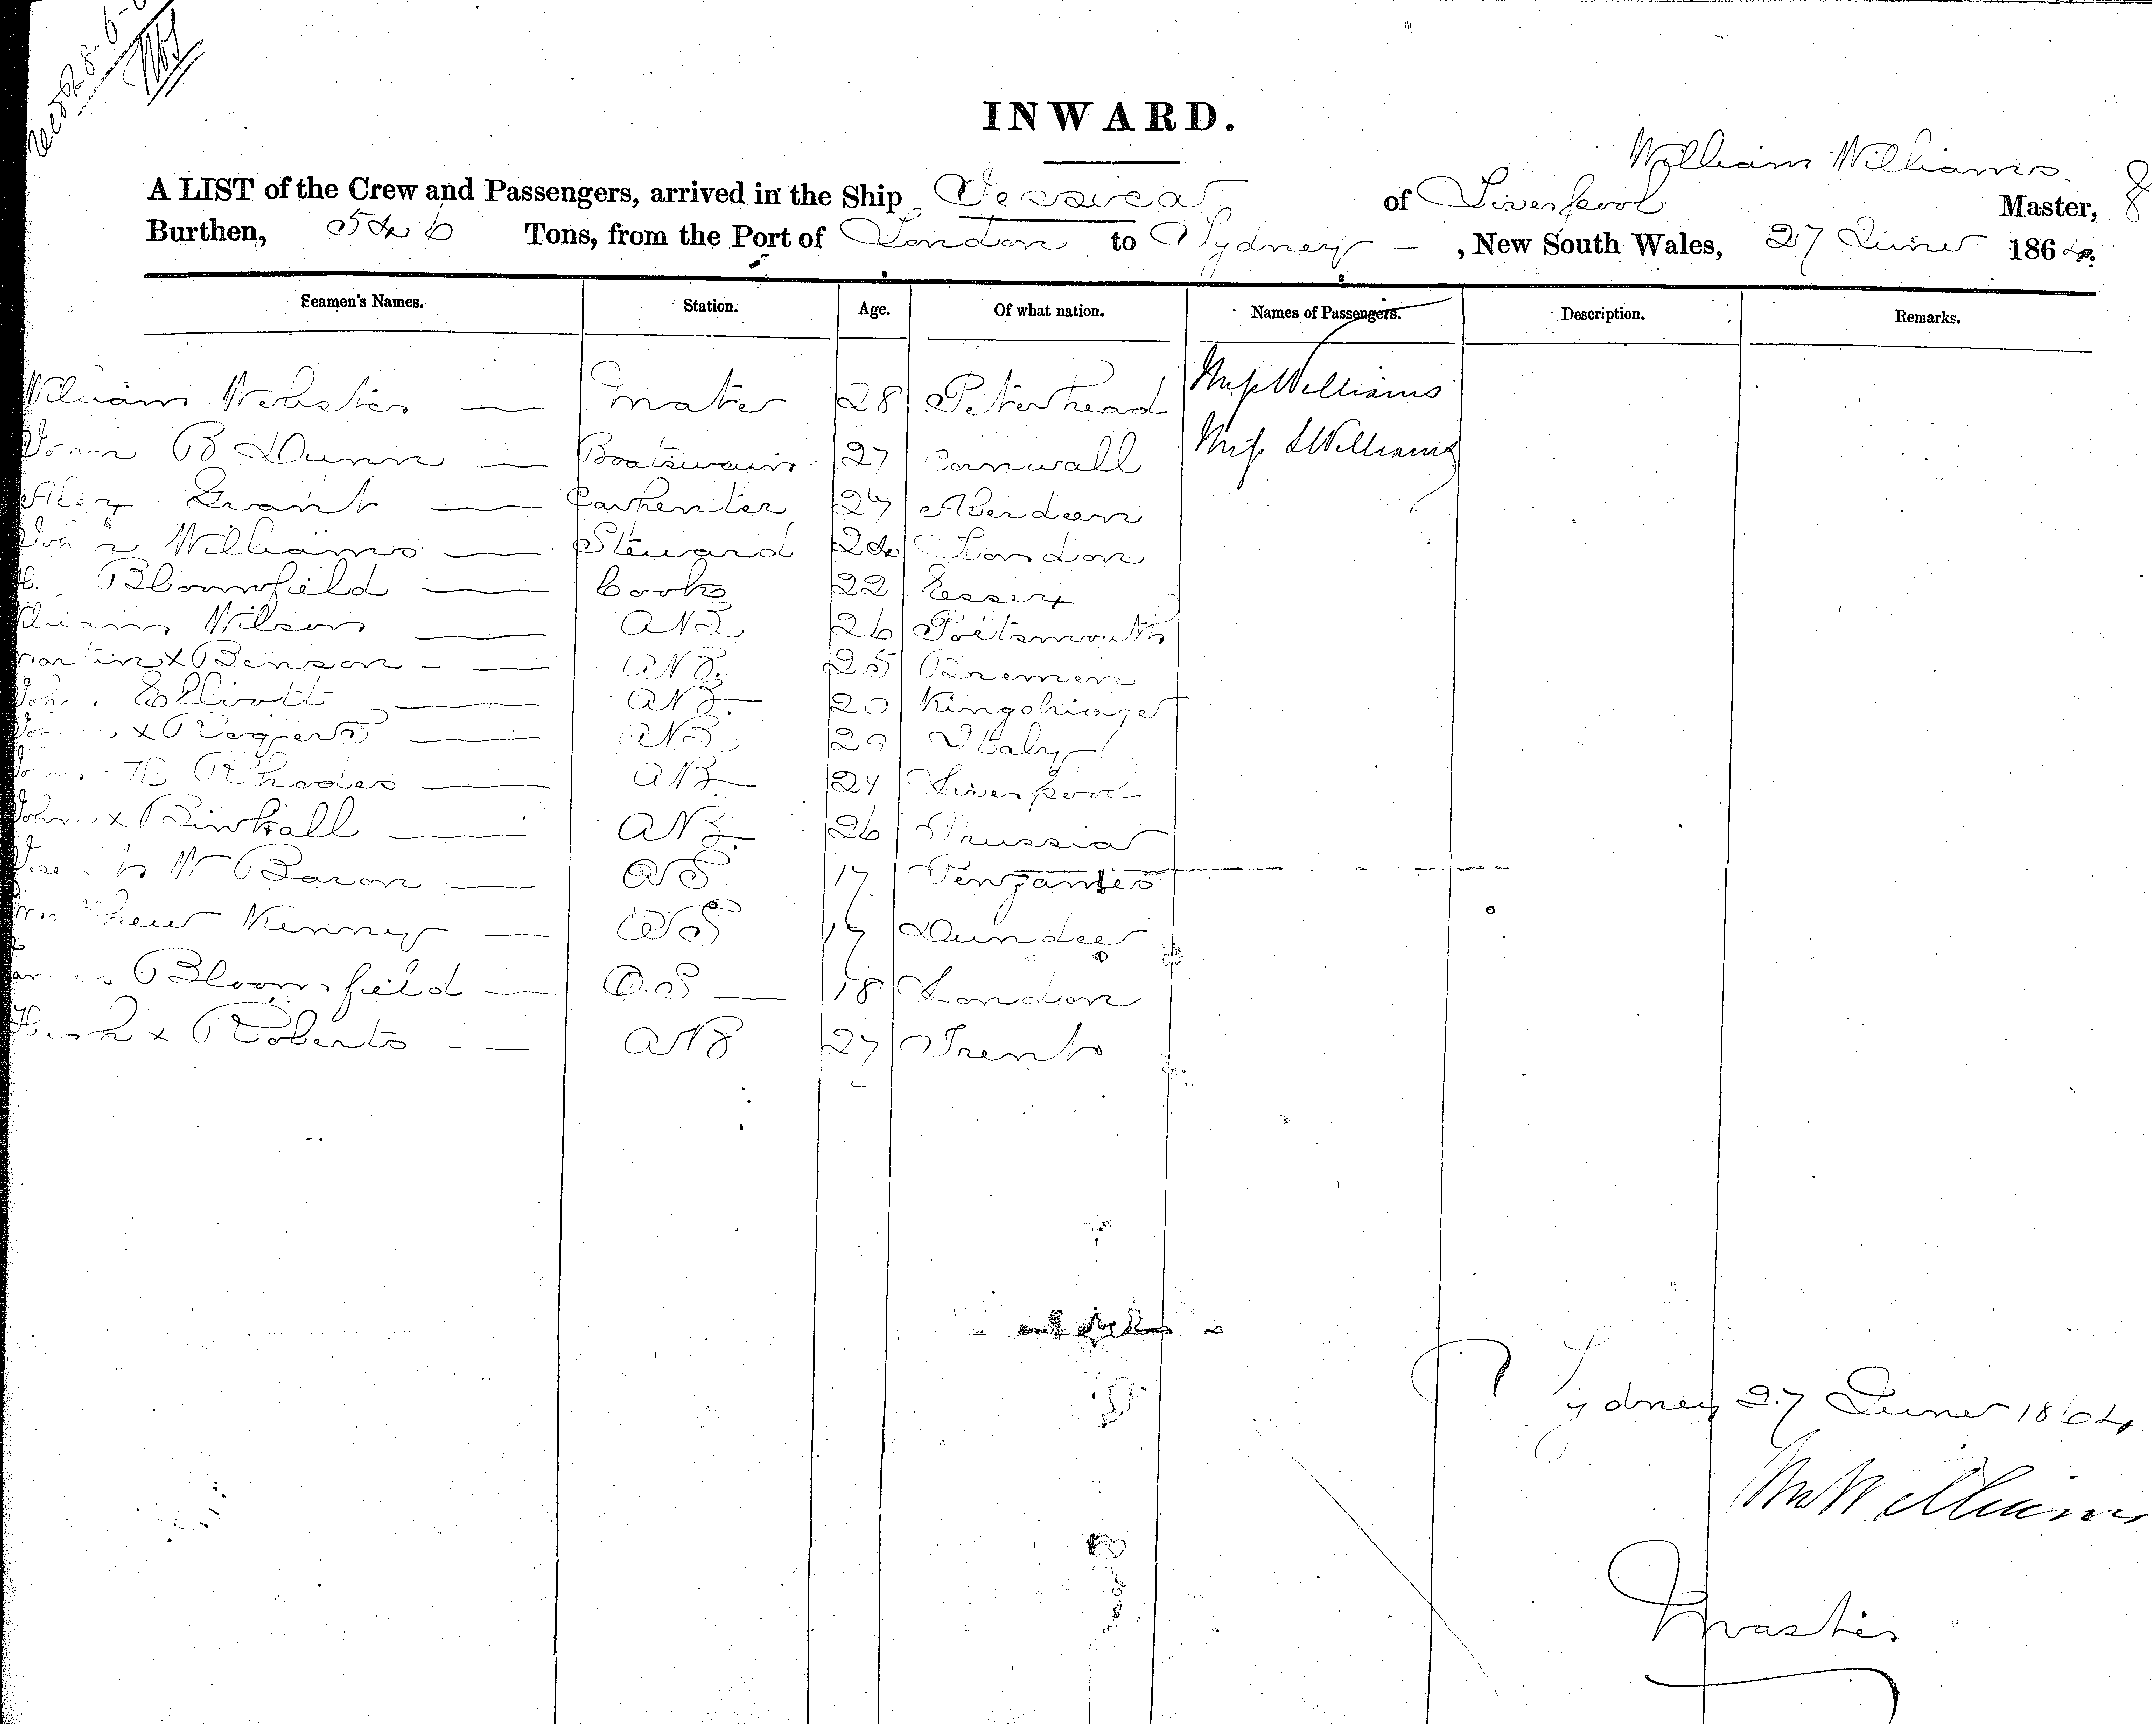 INWARD.
William Williams
A LIST of the Crew and Passengers, arrived in the Ship Jessica of Liverpool Master, 8
Burthen, 546 Tons, from the Port of London to Sydney - , New South Wales, 27 June 1864.
Seamen's Names. Station. Age. Of what nation. Names of Passengers. Description. Remarks.
William Webster — Mate 28 Peterhead Mrs Williams
B Dunn — Boatswain 27 Cornwall Miss Williams
Alex Grant — Carpenter 27 Aberdeen
John Williams — Steward 24 London
Bloomfield — Cook 22 Essex
William Wilson — AB 26 Portsmouth
Martin x Benson - — AB 25 Bremen
John Elliott — AB 20
x — AB Italy
H Rhodes — AB 24 Liverpool
John x — AB 26 Prussia
W Baron — OS 17 Penzance
Mathew Kenney — OS 17 Dundee
James Bloomfield — OS — 18 London
x Roberts - — AB 27
Sydney 27 June 1864
Wm Williams
Master